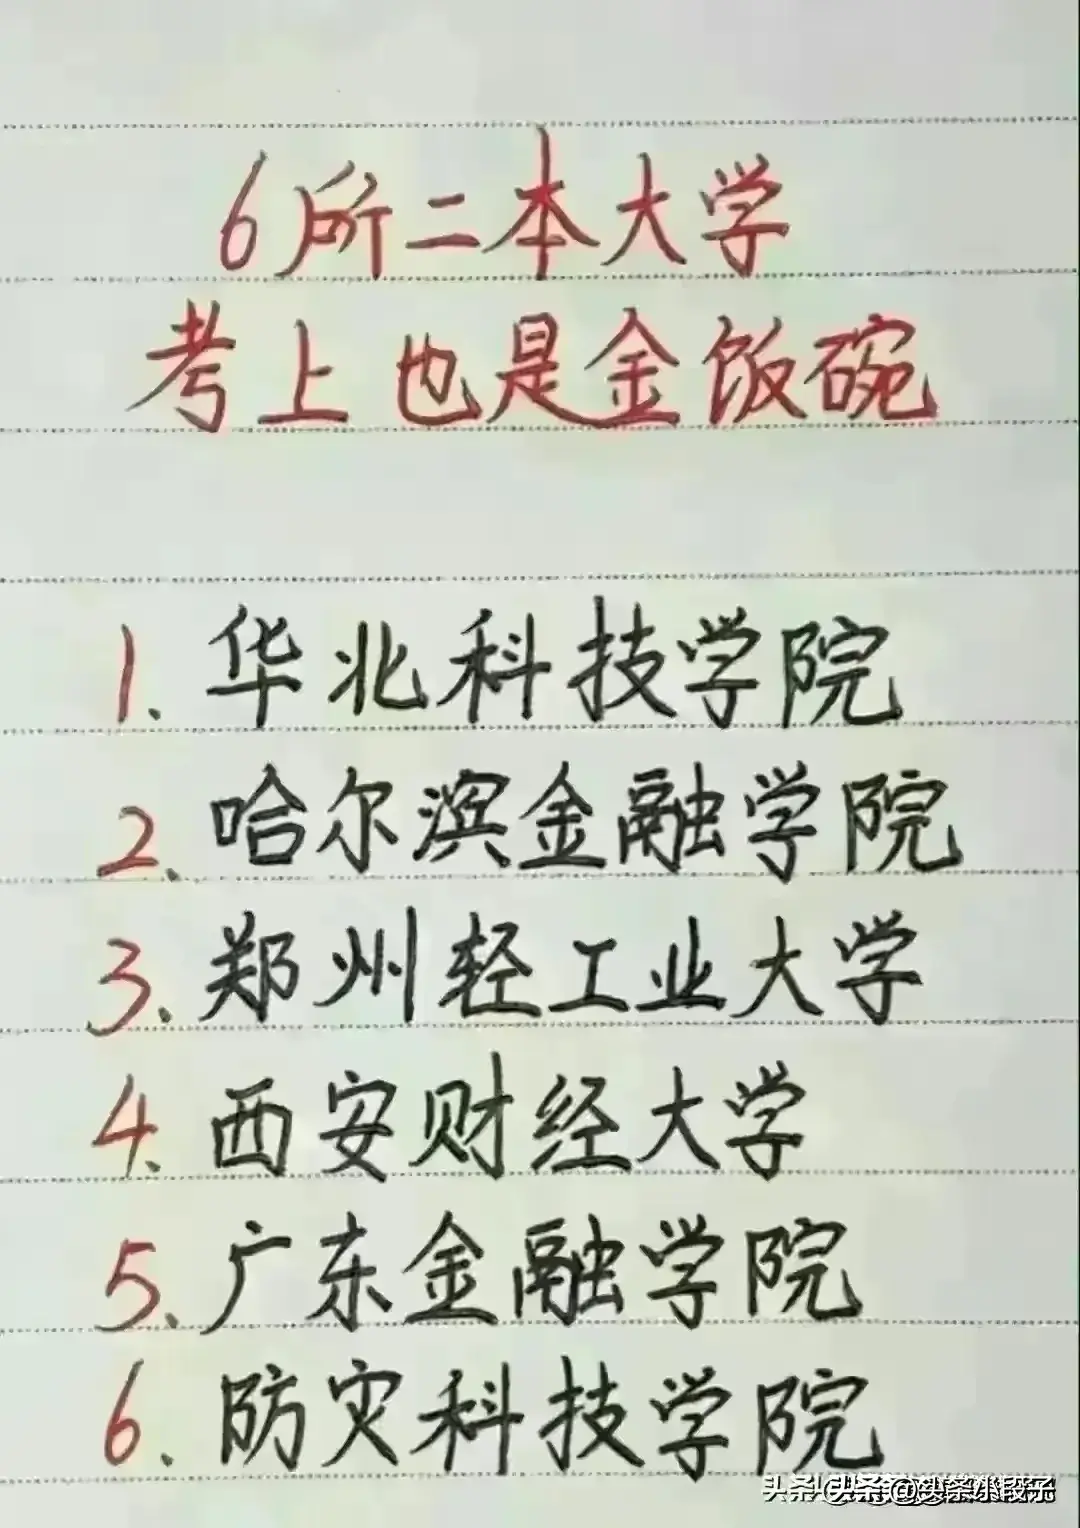 6所二本大学
考上也是金饭碗
1、华北科技学院
2、哈尔滨金融学院
3、郑州轻工业大学
4、西安财经大学
5、广东金融学院
6、防灾科技学院
头条@头条小段子